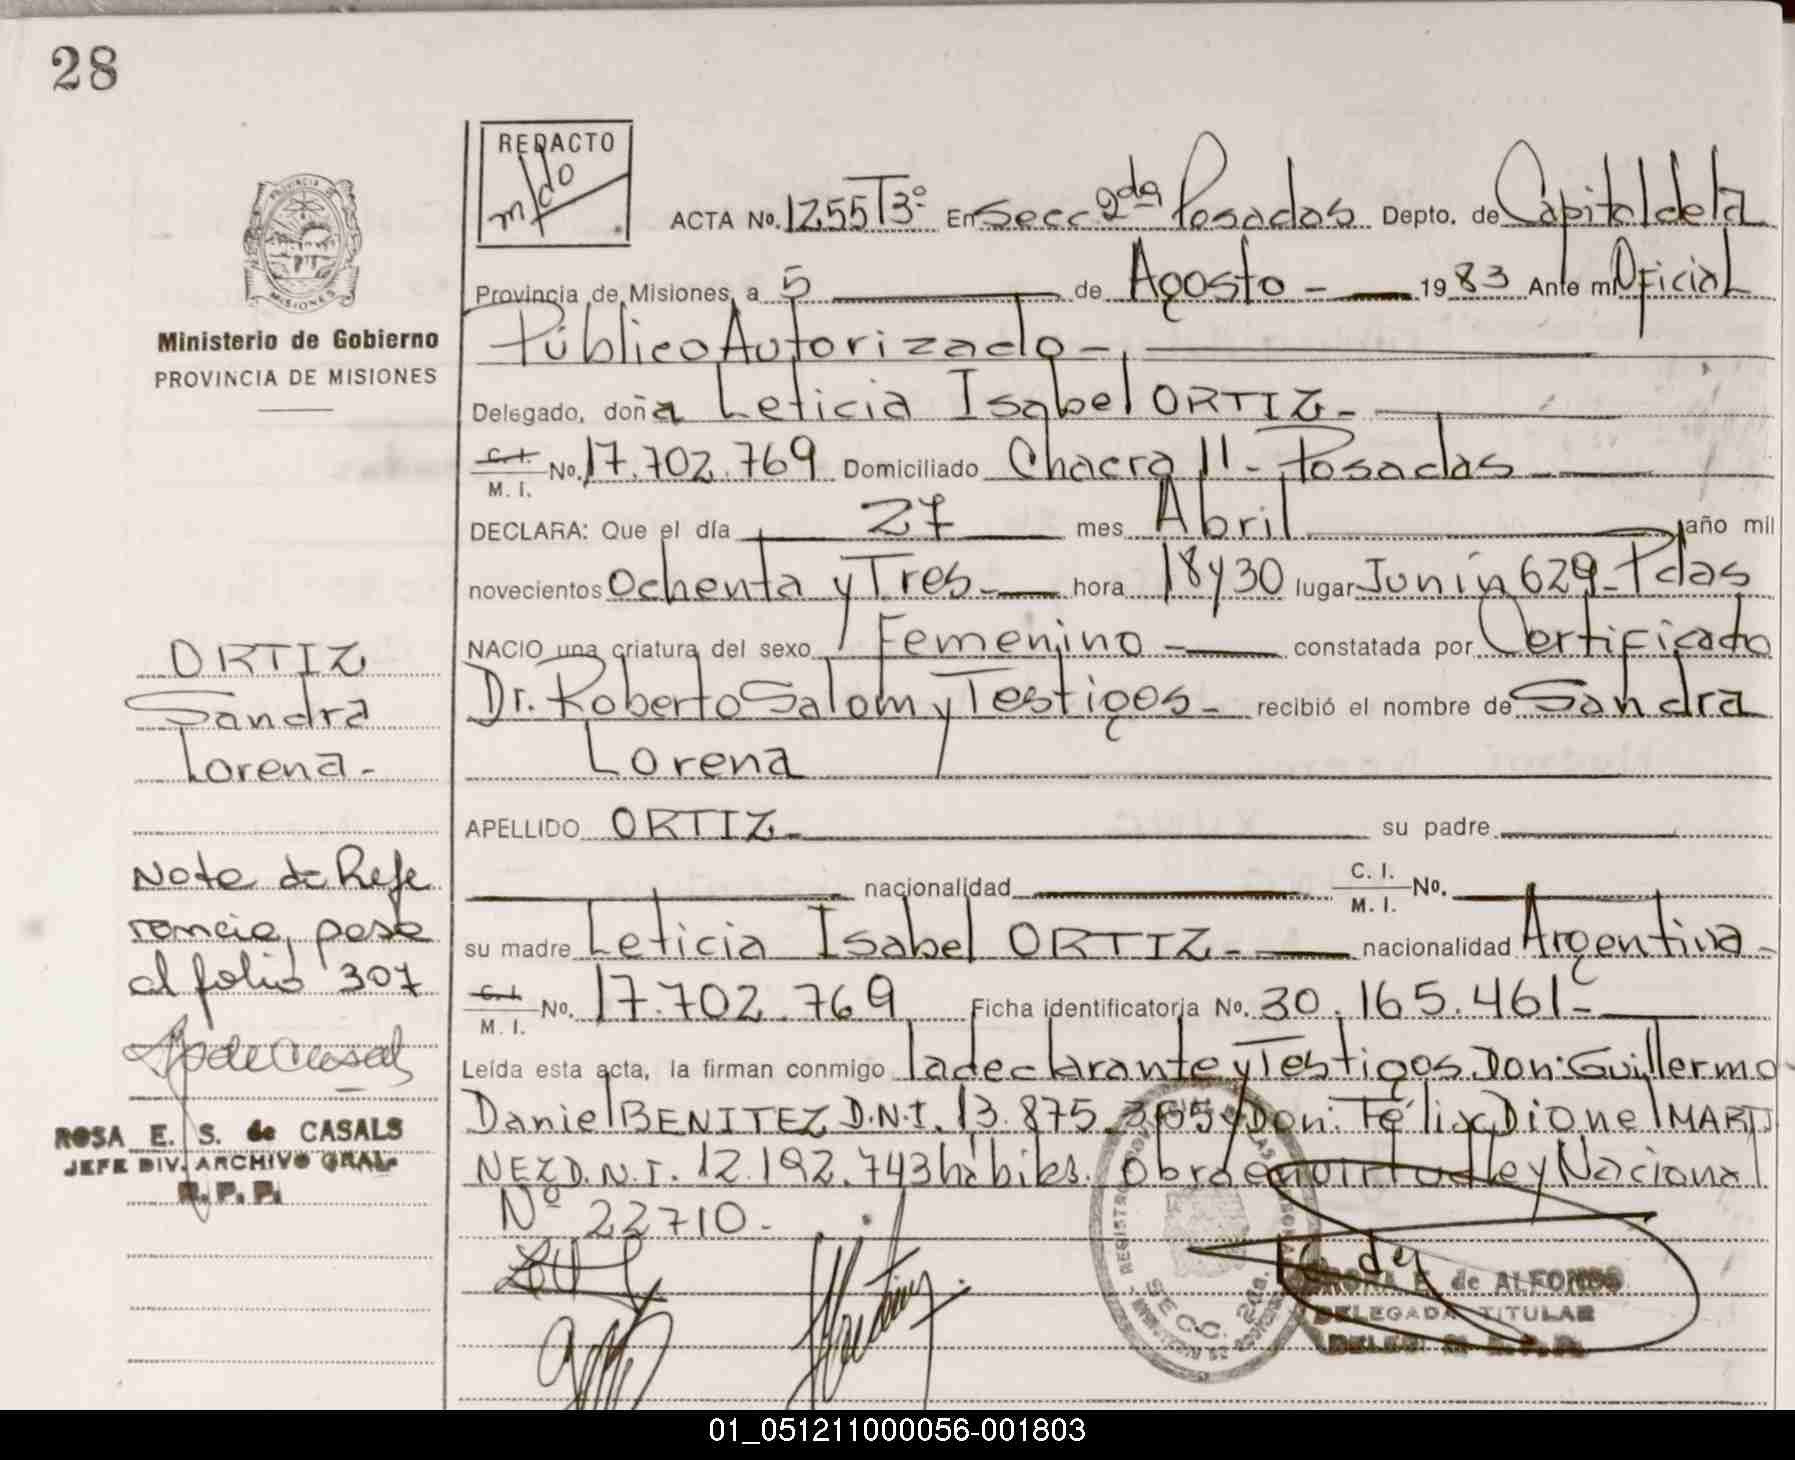 28
REDACTO
m/do
ACTA No. 1255 T3º En Secc 2da Posadas Depto. de Capital de la
Provincia de Misiones, a 5 de Agosto - 1983 Ante mi Oficial
Público Autorizado -
Delegado, doña Leticia Isabel ORTIZ -
C. I. M. I. No. 17.702.769 Domiciliado Chacra 11 - Posadas
DECLARA: Que el día 27 mes Abril año mil
novecientos Ochenta y Tres - hora 18 y 30 lugar Junín 629 - Pdas
NACIO una criatura del sexo Femenino - constatada por Certificado
Dr. Roberto Salom y Testigos - recibió el nombre de Sandra
Lorena
APELLIDO ORTIZ - su padre
nacionalidad C. I. M. I. No.
su madre Leticia Isabel ORTIZ - nacionalidad Argentina -
C. I. M. I. No. 17.702.769 Ficha identificatoria No. 30.165.461 -
Leída esta acta, la firman conmigo la declarante y Testigos Don: Guillermo
Daniel BENITEZ D.N.I. 13.875.365 y Don: Félix Dionel MARTI
NEZ D.N.I. 12.192.743 hábiles. Obra en virtud ley Nacional
Nº 22710 -
PROVINCIA DE MISIONES
Ministerio de Gobierno
PROVINCIA DE MISIONES
ORTIZ
Sandra
Lorena -
Nota de Refe
rencia, pasa
al folio 307
ROSA E. S. de CASALS
JEFE DIV. ARCHIVO GRAL.
R. P. P.
SECC. 2da.
E. de ALFONSO
DELEGADA TITULAR
01_051211000056-001803